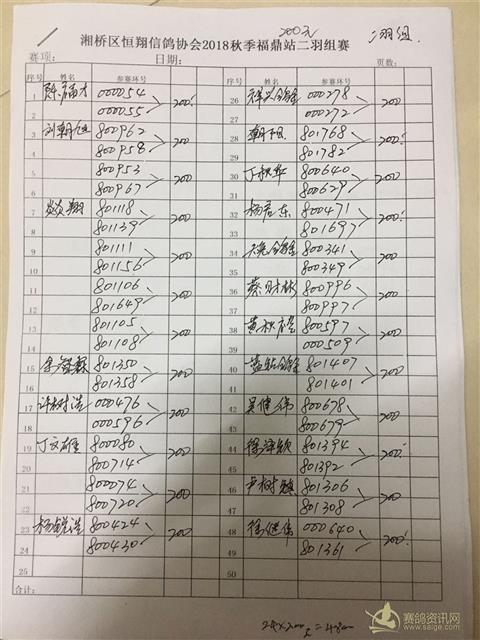 200元
二羽组
湘桥区恒翔信鸽协会2018秋季福鼎站二羽组赛
赛项: 日期: 页数:
序号 姓名 参赛环号 序号 姓名 参赛环号
1 陈福才 000054 200 26 祥兴全锋 000278 200
2 000055 27 000272
3 刘朝旭 800962 200 28 朝阳 801768 200
4 800958 29 801782
5 800953 200 30 丁秋华 800640 200
6 800967 31 800629
7 炎翔 801118 200 32 杨君东 800471 200
8 801139 33 801697
9 801111 200 34 800341 200
10 801156 35 800349
11 801106 200 36 蔡财林 800996 200
12 801649 37 800997
13 801105 200 38 黄秋 800597 200
14 801108 39 000509
15 李 801350 200 40 801407 200
16 801358 41 801401
17 许树浩 000476 200 42 吴健伟 800678 200
18 000596 43 800679
19 丁文雄 800080 200 44 徐泽钦 801394 200
20 800714 45 801392
21 000074 200 46 尹树 801306 200
22 800720 47 801308
23 杨锐浩 800424 200 48 徐健伟 000640 200
24 800430 49 801361
25 50
合计:
24×200=4800
赛鸽资讯网
www.saige.com